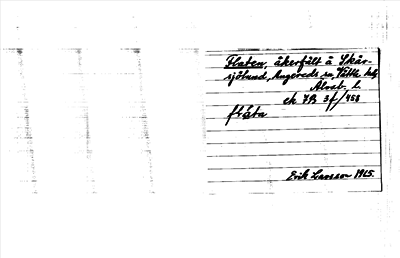 Flaten, åkerfält å Skår-
sjölund, Angereds sn, Vättle hd,
Älvsb. l.
ek 7B 3f/458
flåta
Erik Larsson 1965.